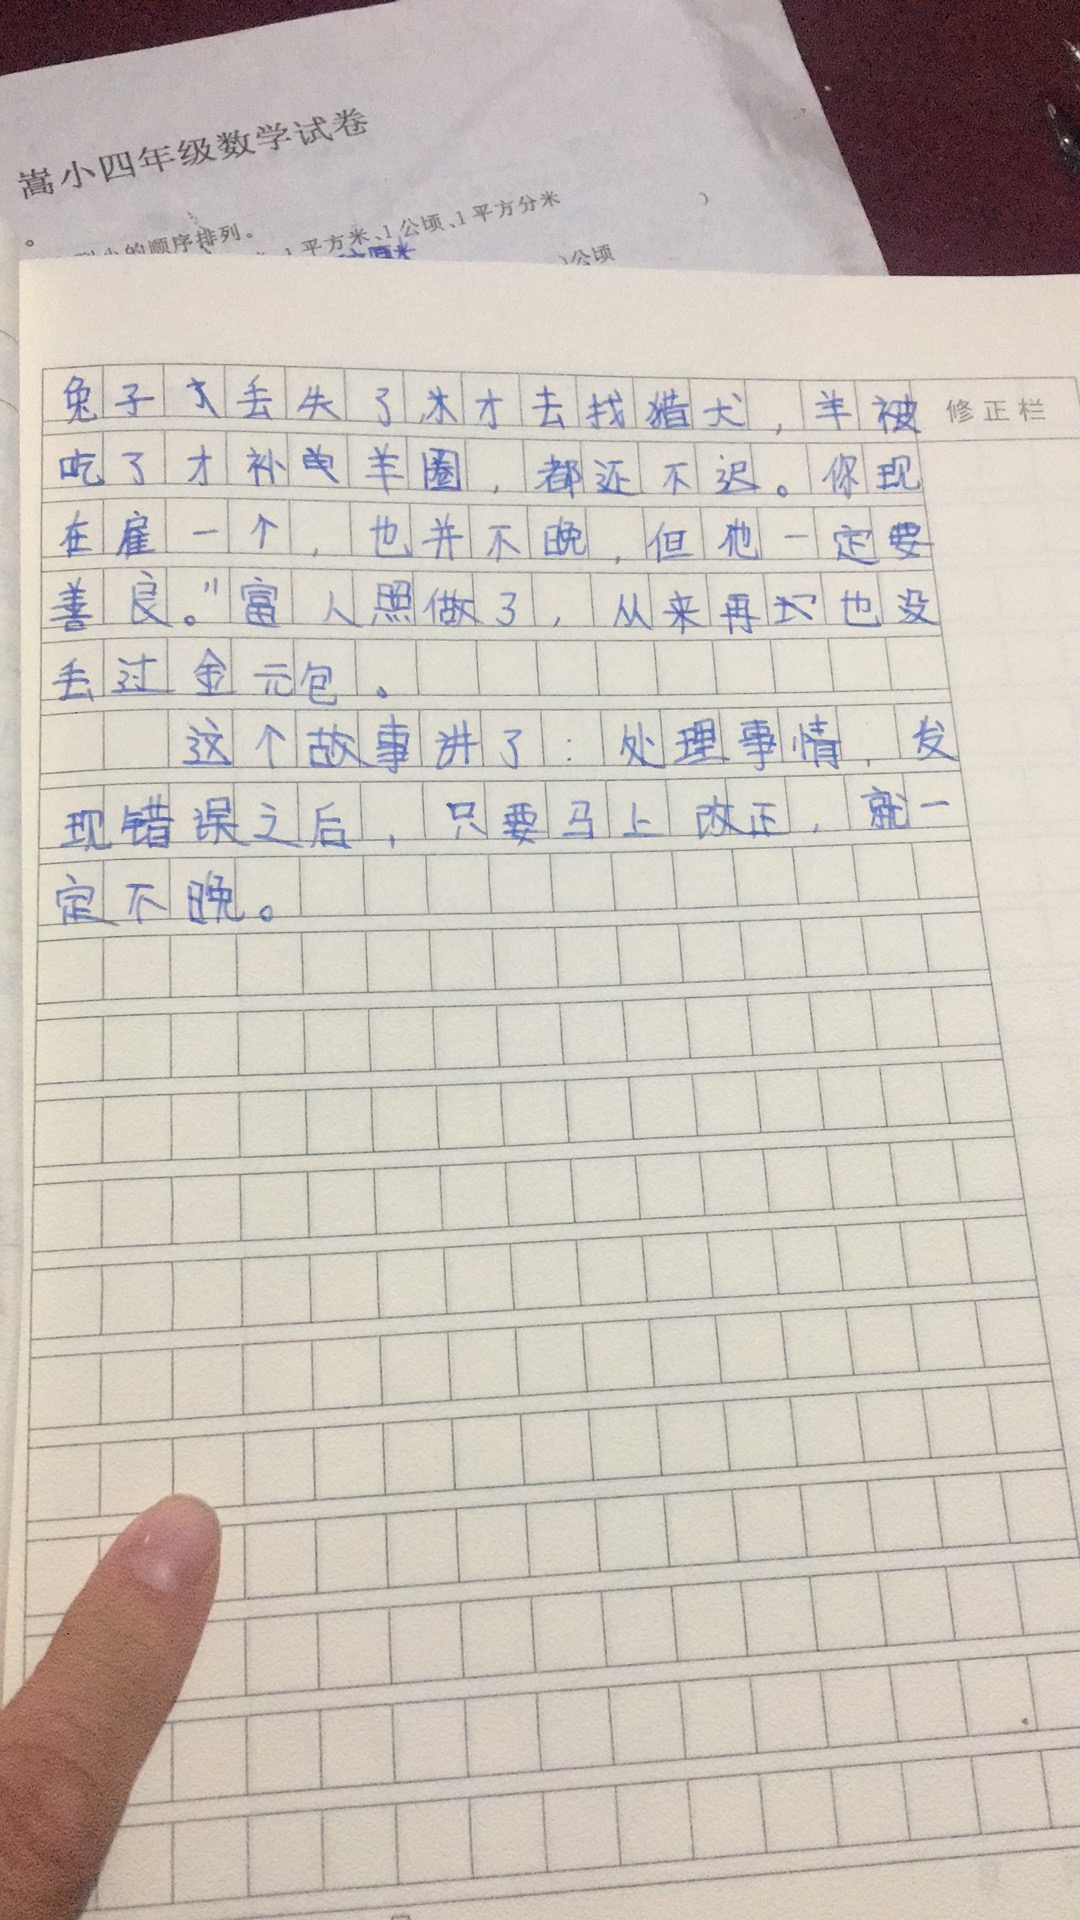 嵩小四年级数学试卷
到小的顺序排列。
1平方米、1公顷、1平方分米 )
)公顷
修正栏
兔子丢失了才去找猎犬，羊被
吃了才补羊圈，都还不迟。你现
在雇一个，也并不晚，但他一定要
善良。”富人照做了，从来再也没
丢过金元包。
这个故事讲了：处理事情，发
现错误之后，只要马上改正，就一
定不晚。